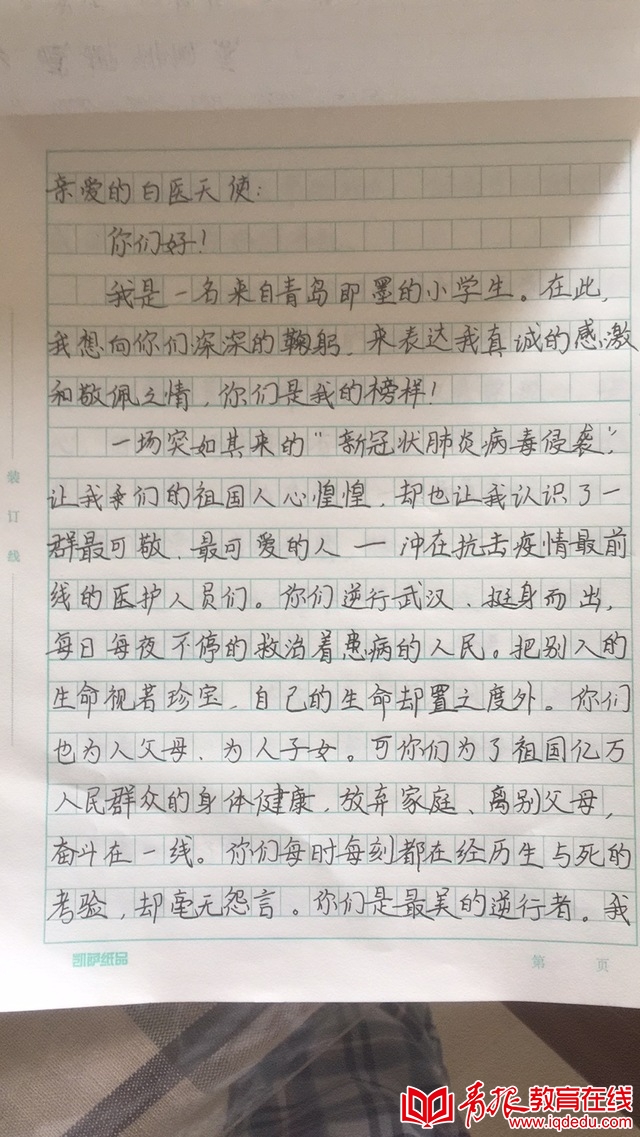 亲爱的白医天使：
你们好！
我是一名来自青岛即墨的小学生。在此，
我想向你们深深的鞠躬，来表达我真诚的感激
和敬佩之情，你们是我的榜样！
一场突如其来的“新冠状肺炎病毒侵袭”，
让我们的祖国人心惶惶，却也让我认识了一
群最可敬、最可爱的人——冲在抗击疫情最前
线的医护人员们。你们逆行武汉、挺身而出，
每日每夜不停的救治着患病的人民。把别人的
生命视若珍宝，自己的生命却置之度外。你们
也为人父母、为人子女。可你们为了祖国亿万
人民群众的身体健康，放弃家庭、离别父母，
奋斗在一线。你们每时每刻都在经历生与死的
考验，却毫无怨言。你们是最美的逆行者。我
装订线
凯萨纸品
第 页
青报教育在线
www.iqdedu.com